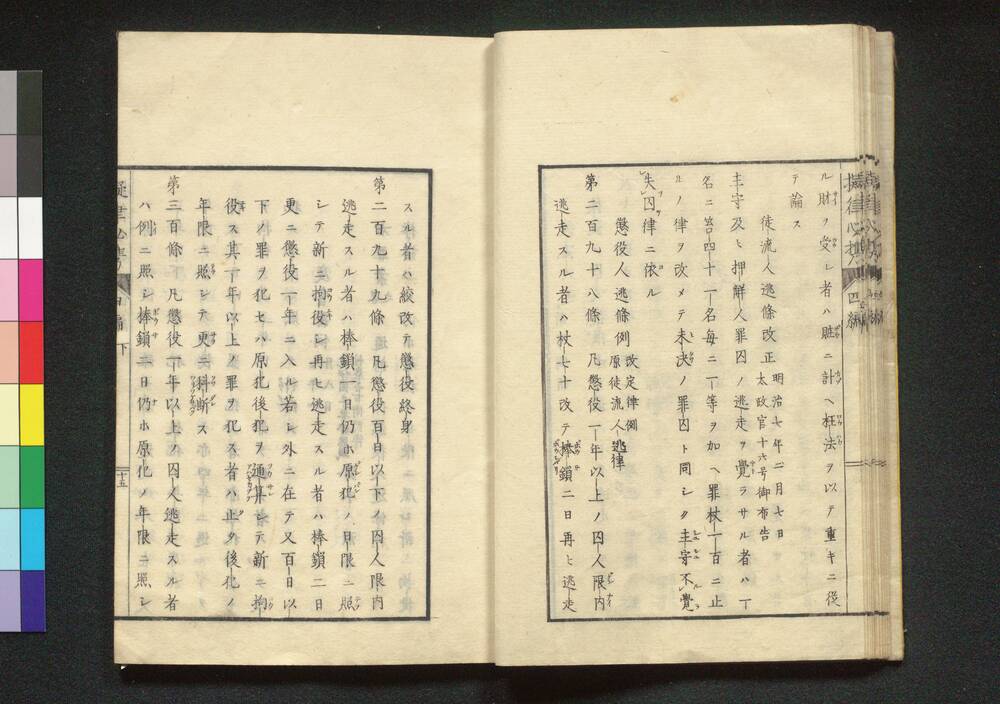 ル財ヲ受シ者ハ賍ニ計ヘ枉法ヲ以テ重キニ從
テ論ス
徒流人逃條改正 明治七年二月七日 太政官十六号御布告
主守及ヒ押解人罪囚ノ逃走ヲ覺ラサル者ハ一
名ニ笞四十一名毎ニ一等ヲ加ヘ罪杖一百ニ止
ルノ律ヲ改メテ未决ノ罪囚ト同シク主守不覺
失囚律ニ依ル
懲役人逃條例 改定律例 原徒流人逃律
第二百九十八條 凡懲役一年以上ノ囚人限内
逃走スル者ハ杖七十改テ棒鎖二日再ヒ逃走
スル者ハ絞改テ懲役終身
第二百九十九條 凡懲役百日以下ノ囚人限内
逃走スル者ハ棒鎖一日仍ホ原犯ノ日限ニ照
シテ新ニ拘役シ再ヒ逃走スル者ハ棒鎖二日
更ニ懲役一年ニ入ル若シ外ニ在テ又百日以
下ノ罪ヲ犯セハ原犯後犯ヲ通算シテ新ニ拘
役ス其一年以上ノ罪ヲ犯ス者ハ止タ後犯ノ
年限ニ照シテ更ニ科断ス
第三百條 凡懲役一年以上ノ囚人逃走スル者
ハ例ニ照シ棒鎖二日仍ホ原犯ノ年限ニ照シ
四編 下
十五